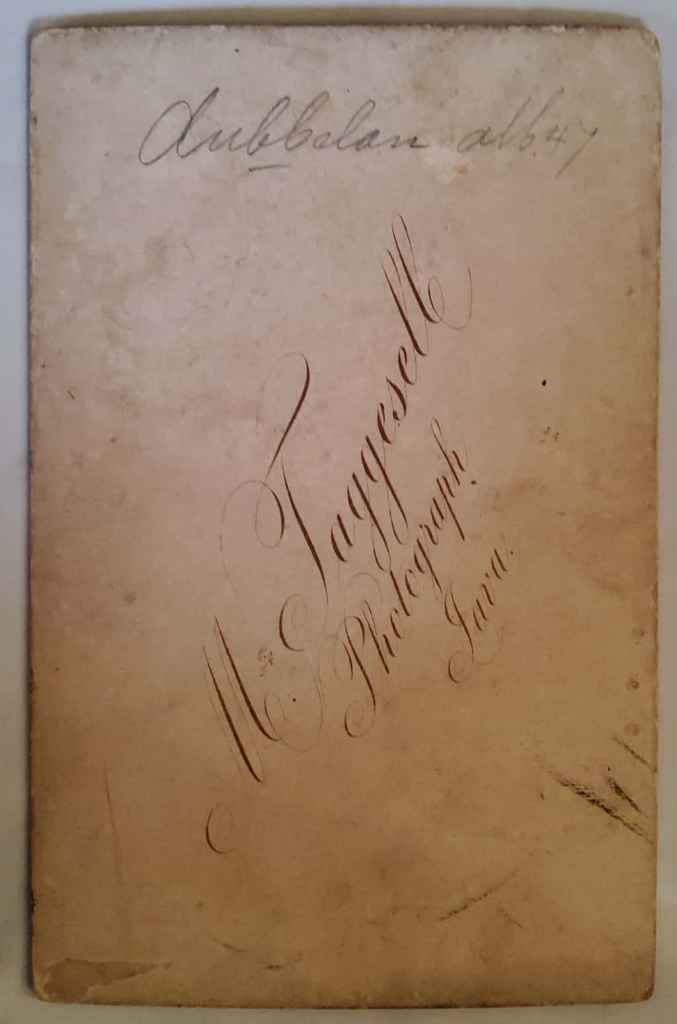 dubbelan alb 47
M. Taggesell
Photograph.
Java.